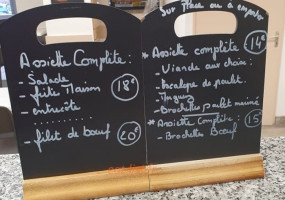 Assiette Complète:
- Salade
- frite Maison
- entrecôte
18€
..........
- filet de bœuf
20€
Sur place ou à emporter
* Assiette complète
14€
- Viande aux choix:
- Escalope de poulet.
- Brochettes poulet mariné
* Assiette Complète:
15€
- Brochettes Bœuf